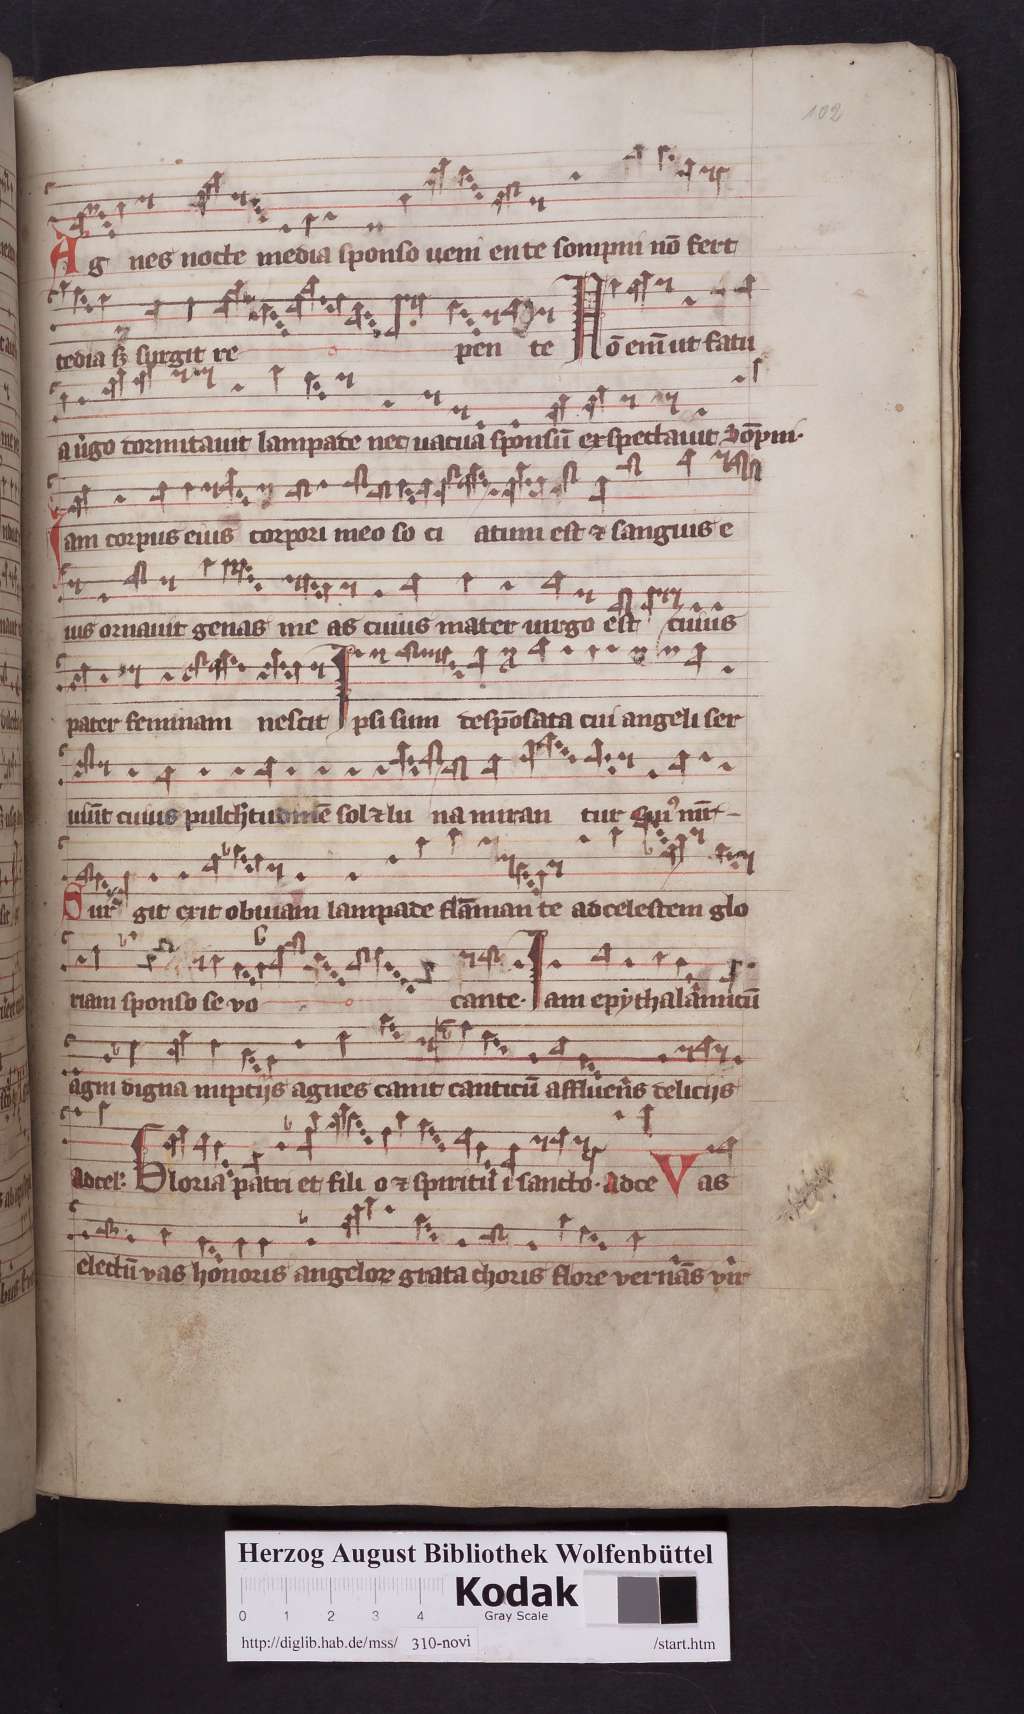 102
Ag nes nocte media sponso veni en te sompni nō fert
tedia sȝ surgit re pen te Nō em̄ ut fatu
a v̇go dormitavit lampade nec vacua sponsū expectavit Dop̄m.
Iam corpus eius corpori meo so ci atum est ⁊ sanguis e
ius ornavit genas me as cuius mater virgo est cuius
pater feminam nescit Ipsi sum despōsata cui angeli ser
viūt cuius pulch̓tudinē sol ⁊ lu na miran tur
Sur git erit obviam lampade flāman te ad celestem glo
riam sponso se vo cante. Iam epythalamicū
agni digna nuptijs agnes canit canticū affluēs delicijs
Ad cel. Gloria patri et fili o ⁊ spiritui sancto. ad ce Vas
electū vas honoris angeloꝝ grata choris flore vernās vir
Herzog August Bibliothek Wolfenbüttel
Kodak
Gray Scale
0 1 2 3 4
http://diglib.hab.de/mss/ 310-novi /start.htm